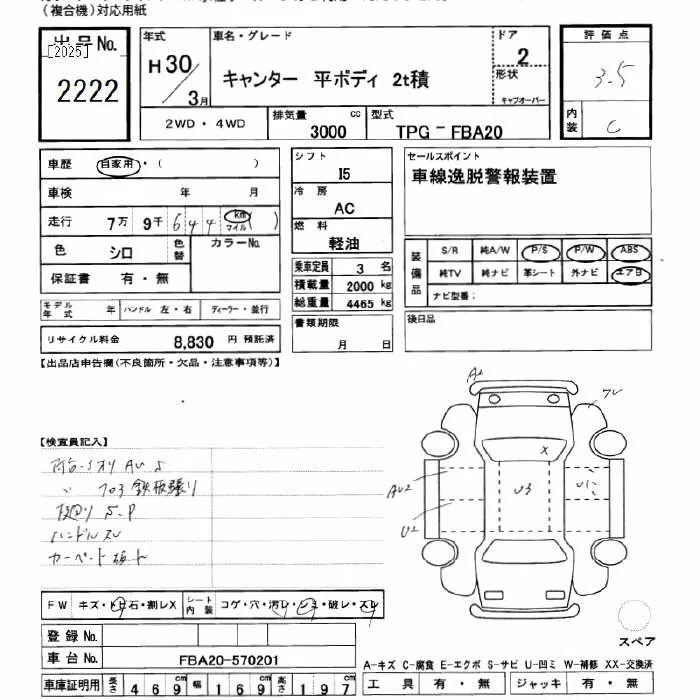 (複合機)対応用紙
出品No.
[2025]
2222
年式
H30/3月
車名・グレード
キャンター 平ボディ 2t積
ドア
2
形状
キャブオーバー
評価点
3.5
内装
C
2WD・4WD
排気量
3000 cc
型式
TPG-FBA20
車歴 自家用・( )
車検 年 月
走行 7万 9千 644 km マイル ( )
色 シロ 色替 カラーNo.
保証書 有・無
モデル年式 年 ハンドル 左・右 ディーラー・並行
リサイクル料金 8,830 円 預託済
シフト
I5
冷房
AC
燃料
軽油
乗車定員 3 名
積載量 2000 kg
総重量 4465 kg
書類期限
月 日
セールスポイント
車線逸脱警報装置
装備品
S/R 純A/W P/S P/W ABS
純TV 純ナビ 革シート 外ナビ エアB
ナビ型番:
後日品
【出品店申告欄(不良箇所・欠品・注意事項等)】
【検査員記入】
荷台アオリ AU S
〃 フロア 鉄板張り
下回り S.P
ハンドル スレ
A2
U3
AU2
U2
X
FW キズ・トビ石・割レX シート内装 コゲ・穴・汚レ・シミ・破レ・スレ
登録No.
車台No. FBA20-570201
車庫証明用 長さ 469cm 幅 169cm 高さ 197cm
スペア
A-キズ C-腐食 E-エクボ S-サビ U-凹ミ W-補修 XX-交換済
工具 有・無 ジャッキ 有・無